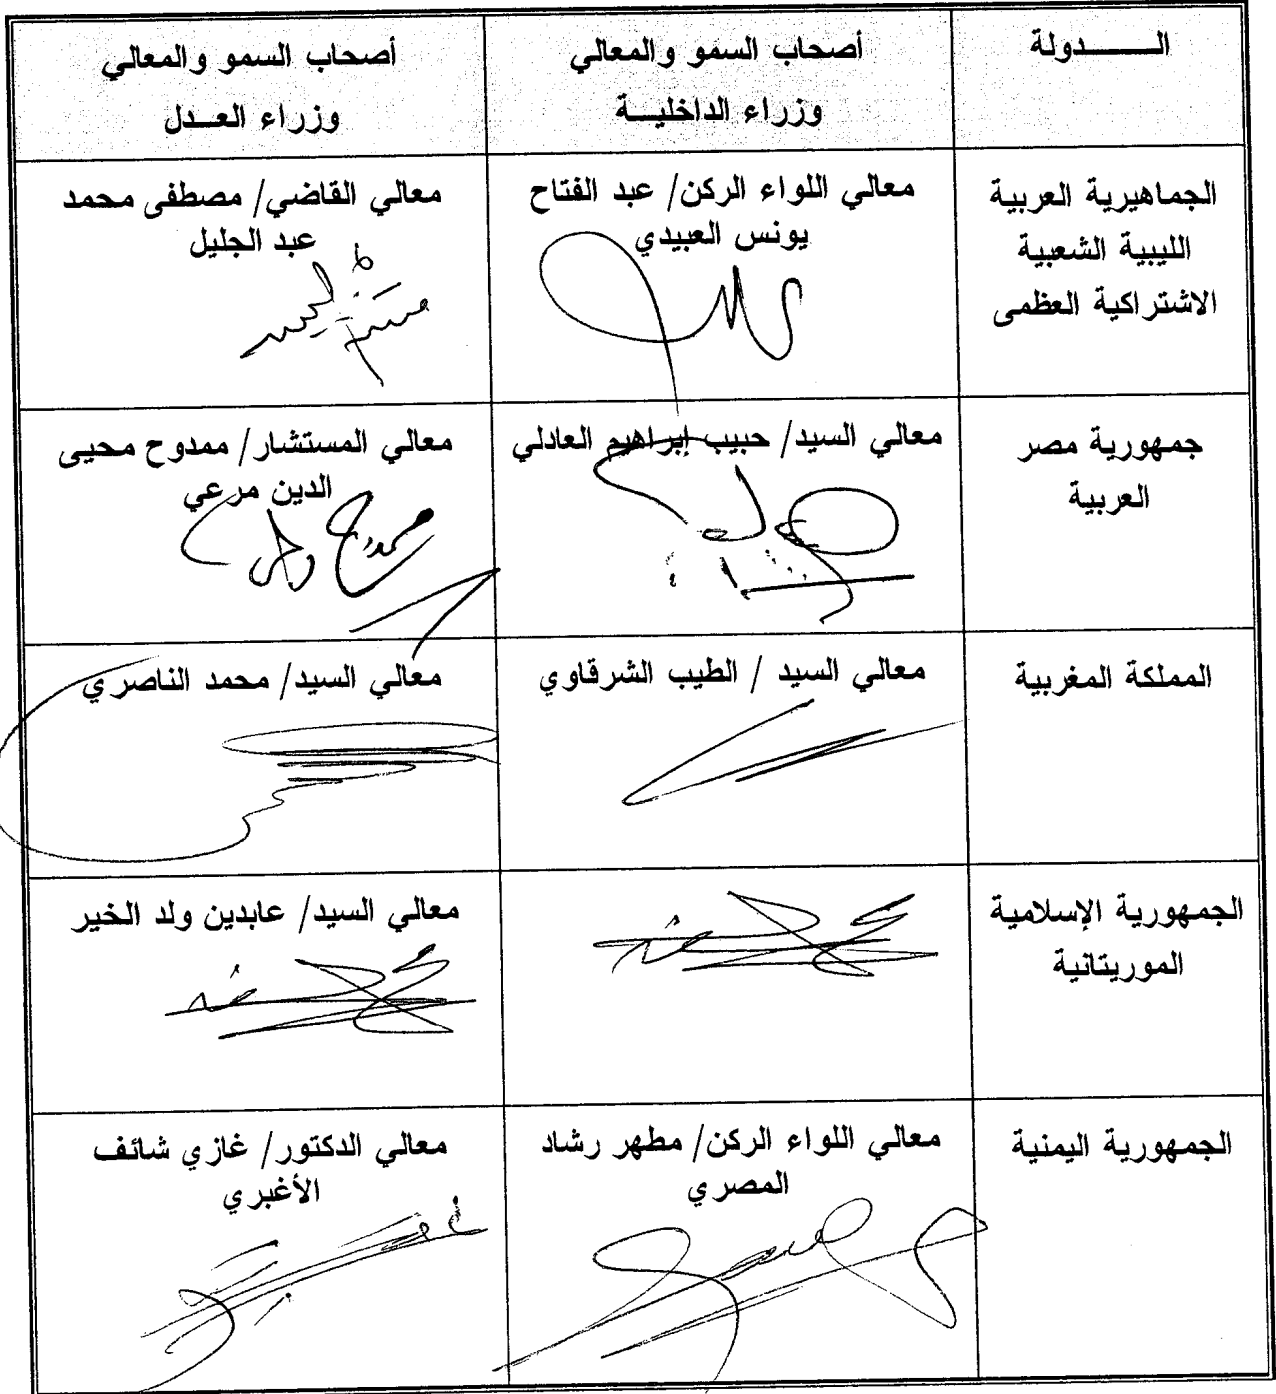 الـــــــدولة
أصحاب السمو والمعالي
وزراء الداخليـــة
أصحاب السمو والمعالي
وزراء العــدل
الجماهيرية العربية
الليبية الشعبية
الاشتراكية العظمى
معالي اللواء الركن/ عبد الفتاح
يونس العبيدي
معالي القاضي/ مصطفى محمد
عبد الجليل
جمهورية مصر
العربية
معالي السيد/ حبيب إبراهيم العادلي
معالي المستشار/ ممدوح محيى
الدين مرعي
المملكة المغربية
معالي السيد / الطيب الشرقاوي
معالي السيد/ محمد الناصري
الجمهورية الإسلامية
الموريتانية
معالي السيد/ عابدين ولد الخير
الجمهورية اليمنية
معالي اللواء الركن/ مطهر رشاد
المصري
معالي الدكتور/ غازي شائف
الأغبري